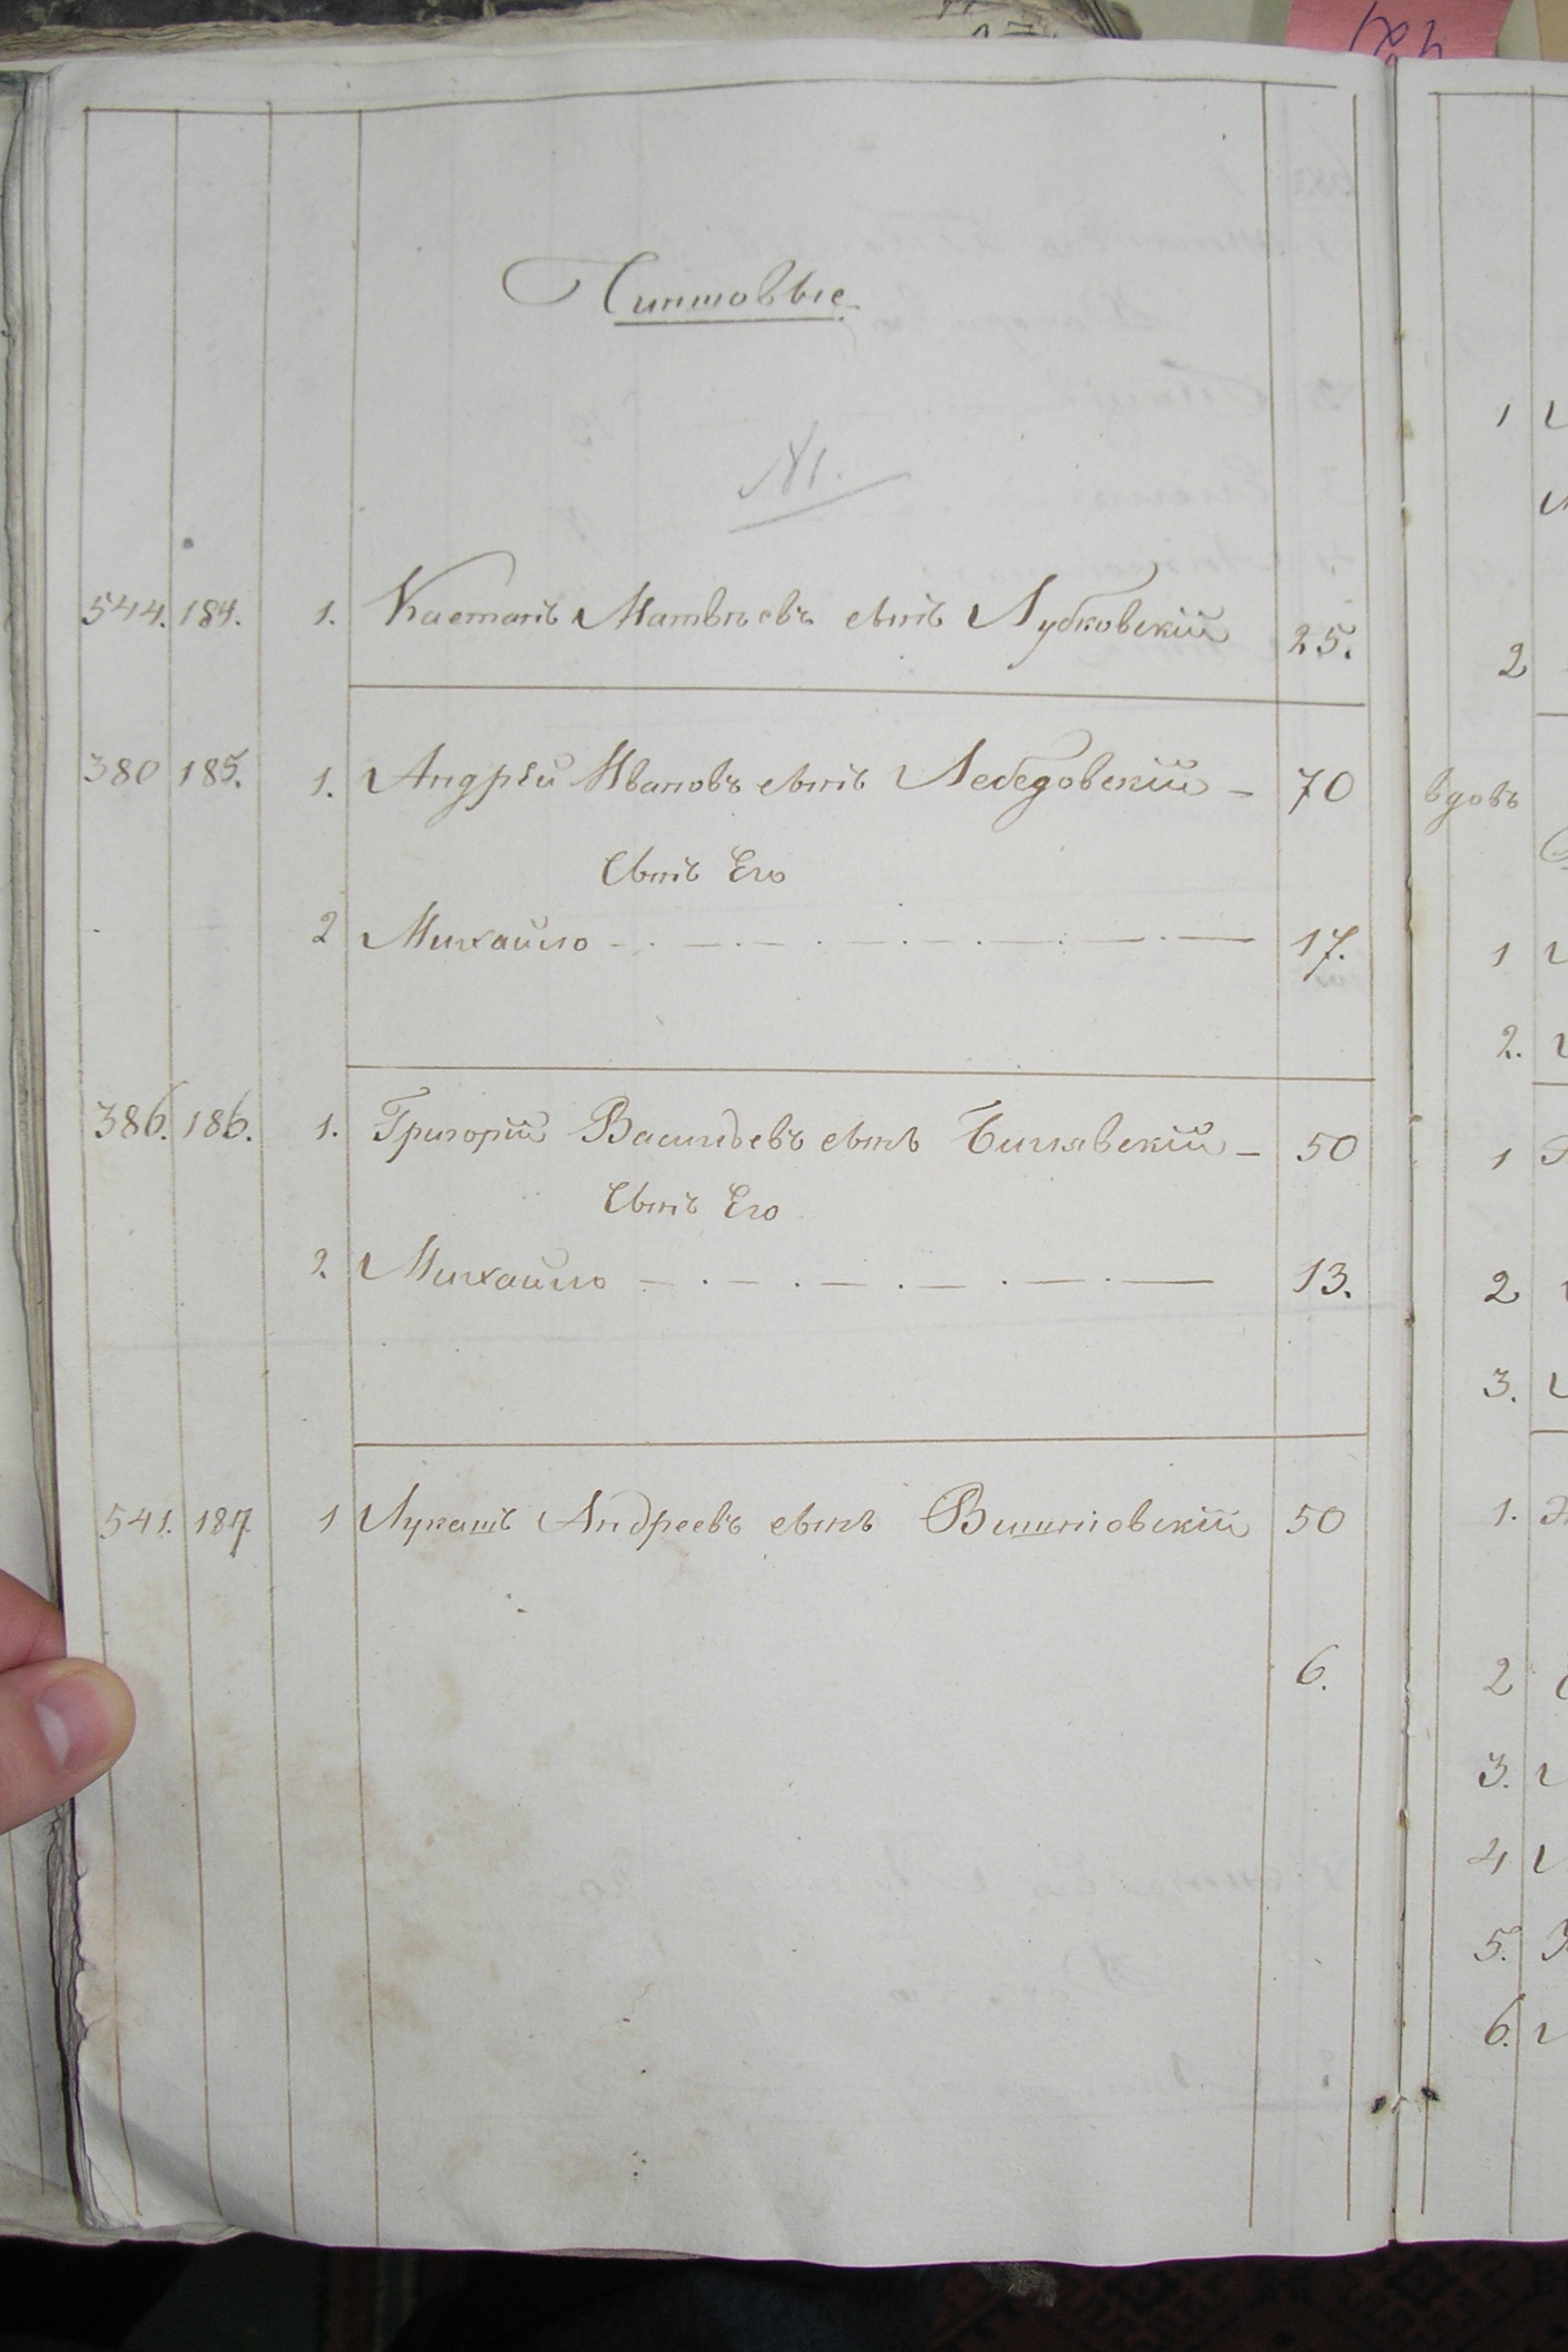 Чиншовые
№1.
544. 184. 1. Каетанъ Матвѣевъ сынъ Лубковскій 25.
380 185. 1. Андрей Ивановъ сынъ Лебедовскій - 70
Сынъ Его
2 Михайло 17.
386. 186. 1. Григорій Васильевъ сынъ Билявскій - 50
Сынъ Его
2. Михайло 13.
541. 187 1 Лукашъ Андреевъ сынъ Вишніовскій 50
6.
1
2
вдовъ
1
2.
1
2
3.
1.
2
3.
4
5.
6.